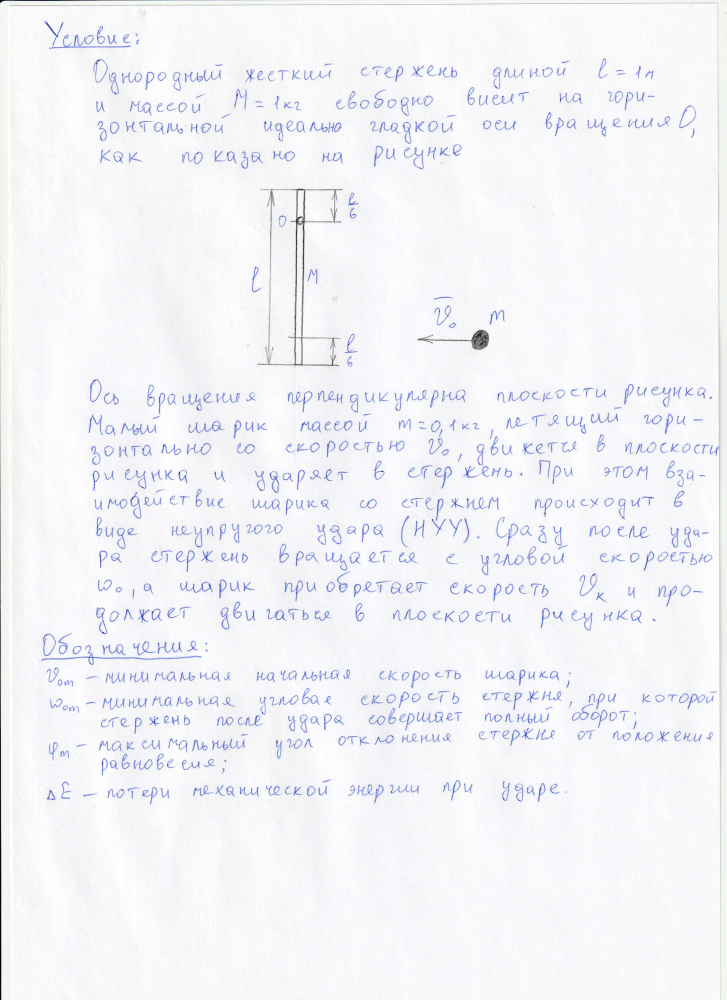 Условие:
Однородный жесткий стержень длиной l = 1м
и массой M = 1кг свободно висит на гори-
зонтальной идеально гладкой оси вращения O,
как показано на рисунке
l/6
O
l
M
v̅₀
m
l/6
Ось вращения перпендикулярна плоскости рисунка.
Малый шарик массой m=0,1кг, летящий гори-
зонтально со скоростью v₀, движется в плоскости
рисунка и ударяет в стержень. При этом вза-
имодействие шарика со стержнем происходит в
виде неупругого удара (НУУ). Сразу после уда-
ра стержень вращается с угловой скоростью
ω₀, а шарик приобретает скорость Vк и про-
должает двигаться в плоскости рисунка.
Обозначения:
v₀m – минимальная начальная скорость шарика;
ω₀m – минимальная угловая скорость стержня, при которой
стержень после удара совершает полный оборот;
φm – максимальный угол отклонения стержня от положения
равновесия;
ΔE – потери механической энергии при ударе.